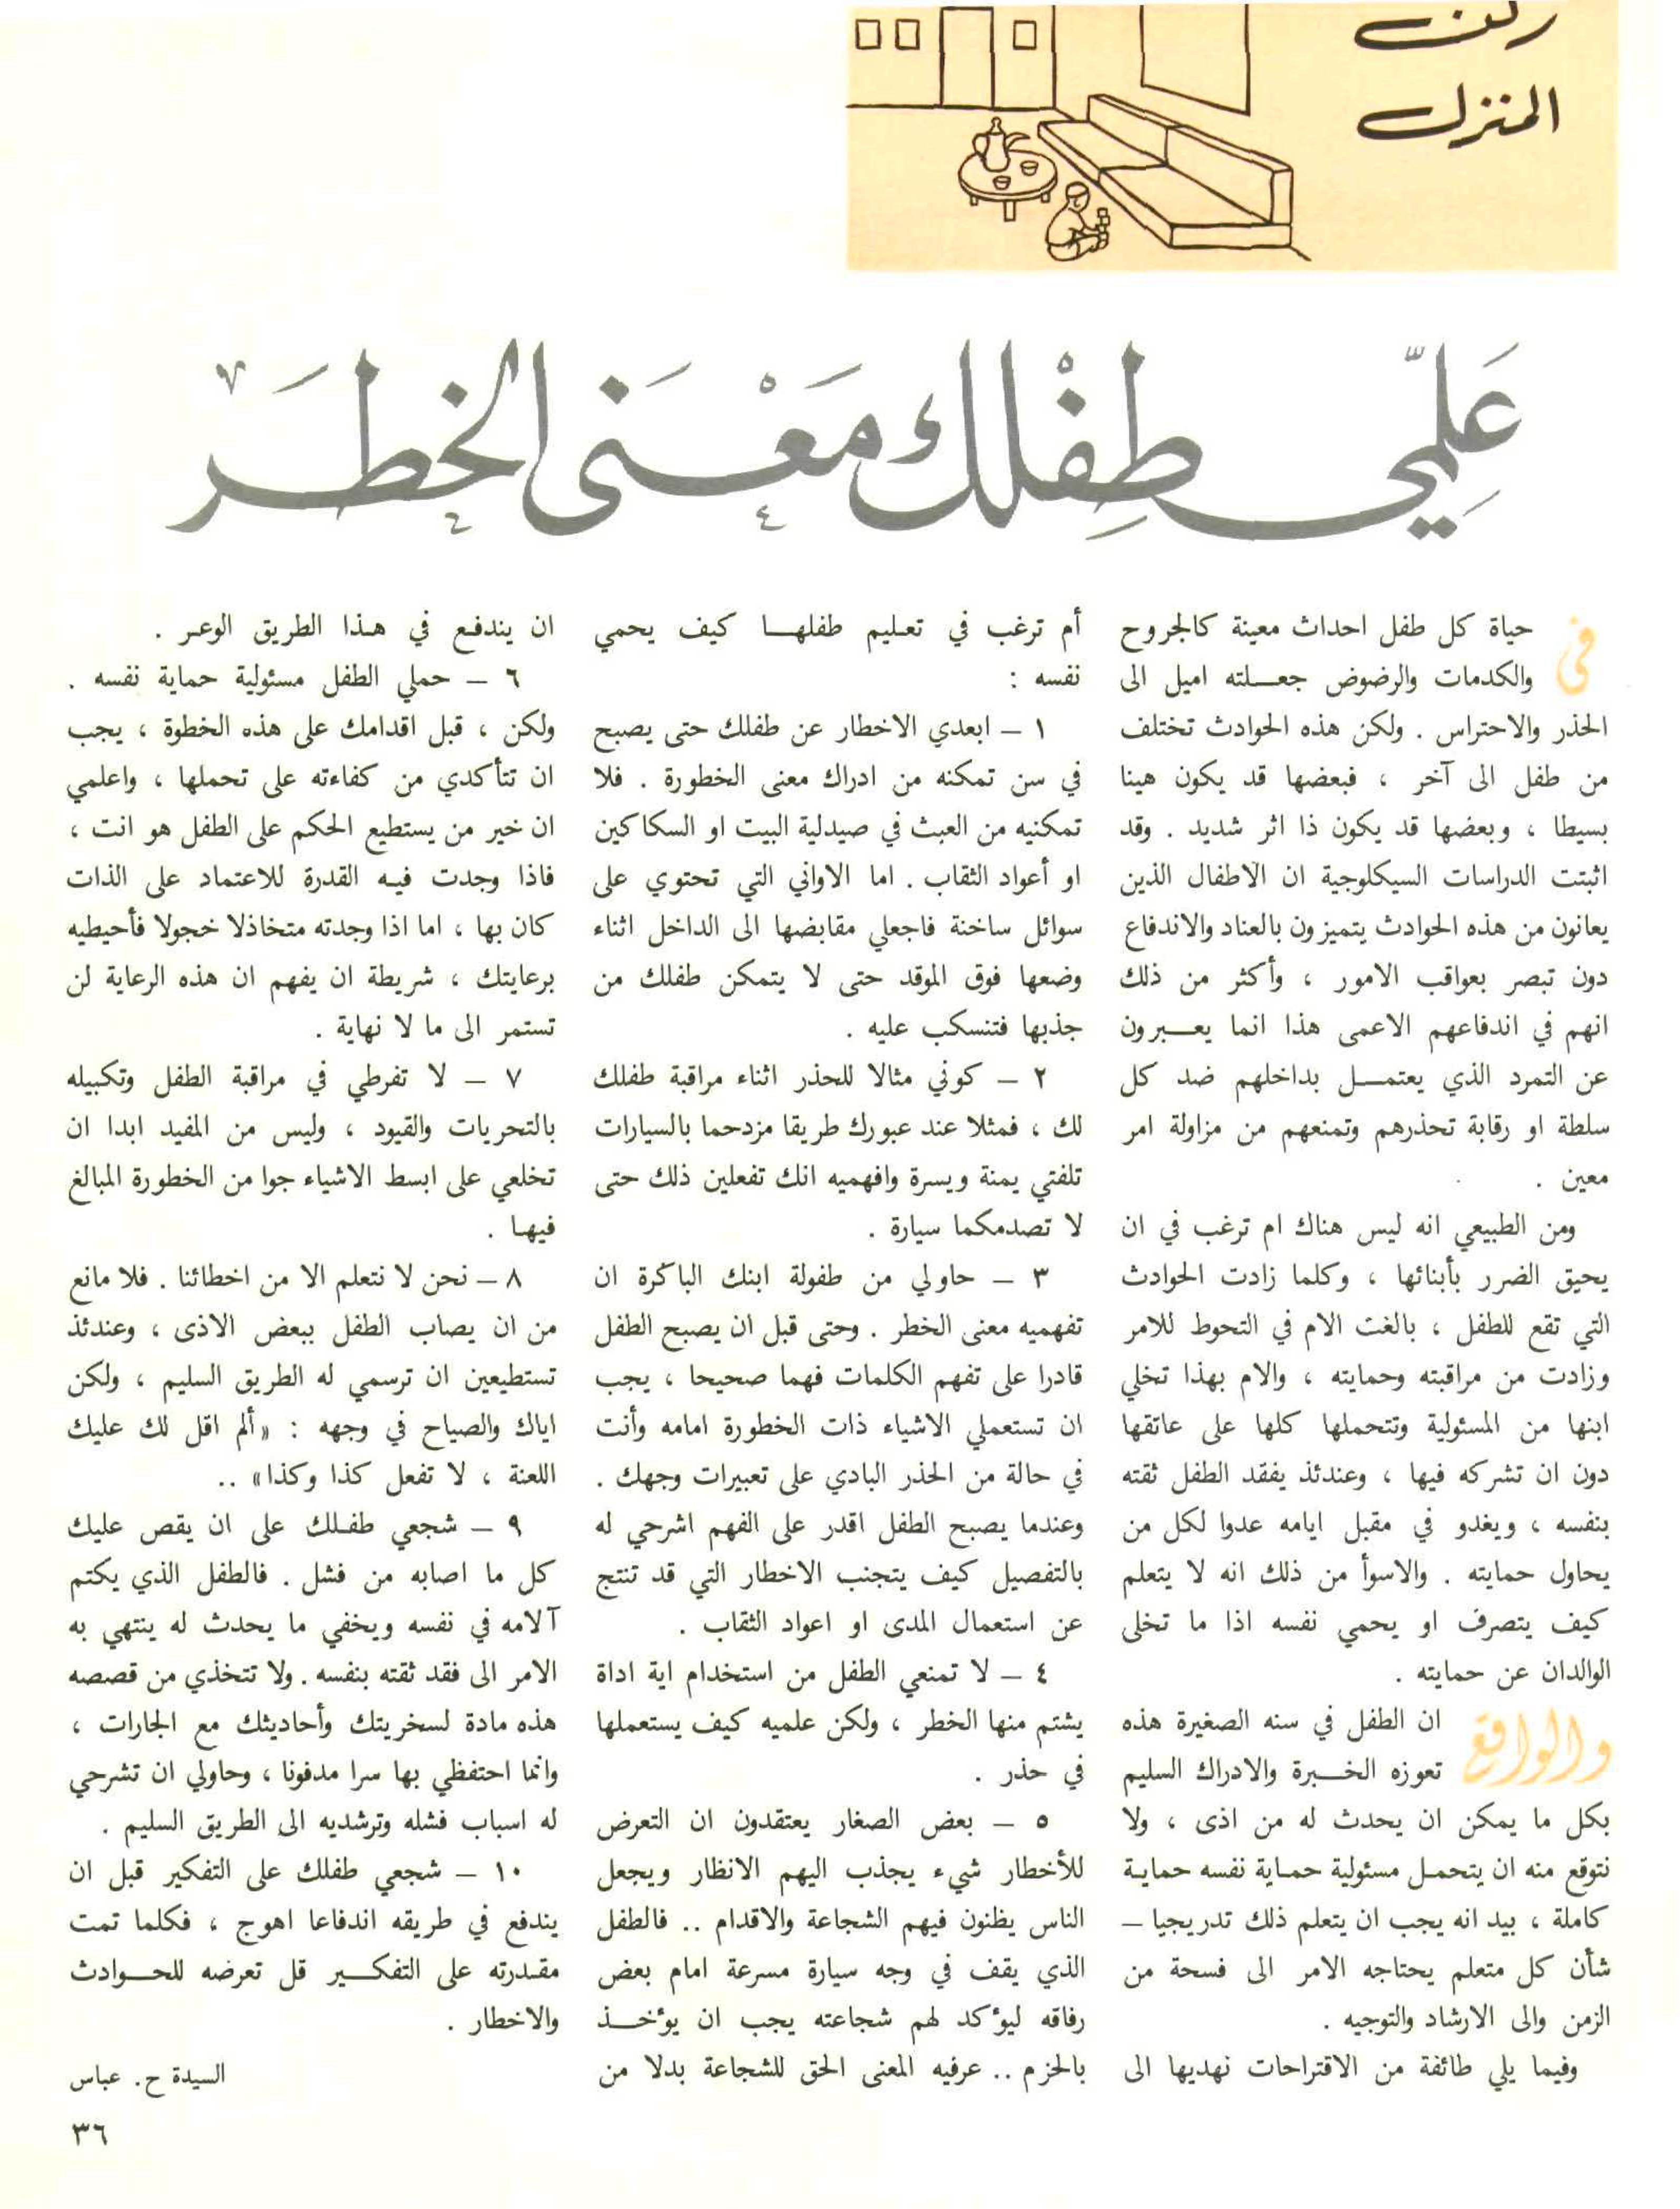 ركن
المنزل
عَلِّمِي طِفْلَك مَعْنَى الخطَر
في حياة كل طفل احداث معينة كالجروح
والكدمات والرضوض جعـــلته اميل الى
الحذر والاحتراس . ولكن هذه الحوادث تختلف
من طفل الى آخر ، فبعضها قد يكون هينا
بسيطا ، وبعضها قد يكون ذا اثر شديد . وقد
اثبتت الدراسات السيكلوجية ان الاطفال الذين
يعانون من هذه الحوادث يتميزون بالعناد والاندفاع
دون تبصر بعواقب الامور ، وأكثر من ذلك
انهم في اندفاعهم الاعمى هذا انما يعـــبرون
عن التمرد الذي يعتمـــل بداخلهم ضد كل
سلطة او رقابة تحذرهم وتمنعهم من مزاولة امر
معين .
ومن الطبيعي انه ليس هناك ام ترغب في ان
يحيق الضرر بأبنائها ، وكلما زادت الحوادث
التي تقع للطفل ، بالغت الام في التحوط للامر
وزادت من مراقبته وحمايته ، والام بهذا تخلي
ابنها من المسئولية وتتحملها كلها على عاتقها
دون ان تشركه فيها ، وعندئذ يفقد الطفل ثقته
بنفسه ، ويغدو في مقبل ايامه عدوا لكل من
يحاول حمايته . والاسوأ من ذلك انه لا يتعلم
كيف يتصرف او يحمي نفسه اذا ما تخلى
الوالدان عن حمايته .
والواقع ان الطفل في سنه الصغيرة هذه
تعوزه الخـــبرة والادراك السليم
بكل ما يمكن ان يحدث له من اذى ، ولا
نتوقع منه ان يتحمل مسئولية حماية نفسه حماية
كاملة ، بيد انه يجب ان يتعلم ذلك تدريجيا –
شأن كل متعلم يحتاجه الامر الى فسحة من
الزمن والى الارشاد والتوجيه .
وفيما يلي طائفة من الاقتراحات نهديها الى
أم ترغب في تعليم طفلهـــا كيف يحمي
نفسه :
١ – ابعدي الاخطار عن طفلك حتى يصبح
في سن تمكنه من ادراك معنى الخطورة . فلا
تمكنيه من العبث في صيدلية البيت او السكاكين
او أعواد الثقاب . اما الاواني التي تحتوي على
سوائل ساخنة فاجعلي مقابضها الى الداخل اثناء
وضعها فوق الموقد حتى لا يتمكن طفلك من
جذبها فتنسكب عليه .
٢ – كوني مثالا للحذر اثناء مراقبة طفلك
لك ، فمثلا عند عبورك طريقا مزدحما بالسيارات
تلفتي يمنة ويسرة وافهميه انك تفعلين ذلك حتى
لا تصدمكما سيارة .
٣ – حاولي من طفولة ابنك الباكرة ان
تفهميه معنى الخطر . وحتى قبل ان يصبح الطفل
قادرا على تفهم الكلمات فهما صحيحا ، يجب
ان تستعملي الاشياء ذات الخطورة امامه وأنت
في حالة من الحذر البادي على تعبيرات وجهك .
وعندما يصبح الطفل اقدر على الفهم اشرحي له
بالتفصيل كيف يتجنب الاخطار التي قد تنتج
عن استعمال المدى او اعواد الثقاب .
٤ – لا تمنعي الطفل من استخدام اية اداة
يشتم منها الخطر ، ولكن علميه كيف يستعملها
في حذر .
٥ – بعض الصغار يعتقدون ان التعرض
للأخطار شيء يجذب اليهم الانظار ويجعل
الناس يظنون فيهم الشجاعة والاقدام .. فالطفل
الذي يقف في وجه سيارة مسرعة امام بعض
رفاقه ليؤكد لهم شجاعته يجب ان يؤخـــذ
بالحزم .. عرفيه المعنى الحق للشجاعة بدلا من
ان يندفع في هذا الطريق الوعر .
٦ – حملي الطفل مسئولية حماية نفسه .
ولكن ، قبل اقدامك على هذه الخطوة ، يجب
ان تتأكدي من كفاءته على تحملها ، واعلمي
ان خير من يستطيع الحكم على الطفل هو انت ،
فاذا وجدت فيه القدرة للاعتماد على الذات
كان بها ، اما اذا وجدته متخاذلا خجولا فأحيطيه
برعايتك ، شريطة ان يفهم ان هذه الرعاية لن
تستمر الى ما لا نهاية .
٧ – لا تفرطي في مراقبة الطفل وتكبيله
بالتحريات والقيود ، وليس من المفيد ابدا ان
تخلعي على ابسط الاشياء جوا من الخطورة المبالغ
فيها .
٨ – نحن لا نتعلم الا من اخطائنا . فلا مانع
من ان يصاب الطفل ببعض الاذى ، وعندئذ
تستطيعين ان ترسمي له الطريق السليم ، ولكن
اياك والصياح في وجهه : «ألم اقل لك عليك
اللعنة ، لا تفعل كذا وكذا» ..
٩ – شجعي طفلك على ان يقص عليك
كل ما اصابه من فشل . فالطفل الذي يكتم
آلامه في نفسه ويخفي ما يحدث له ينتهي به
الامر الى فقد ثقته بنفسه . ولا تتخذي من قصصه
هذه مادة لسخريتك وأحاديثك مع الجارات ،
وانما احتفظي بها سرا مدفونا ، وحاولي ان تشرحي
له اسباب فشله وترشديه الى الطريق السليم .
١٠ – شجعي طفلك على التفكير قبل ان
يندفع في طريقه اندفاعا اهوج ، فكلما تمت
مقدرته على التفكـــير قل تعرضه للحـــوادث
والاخطار .
السيدة ح. عباس
٣٦